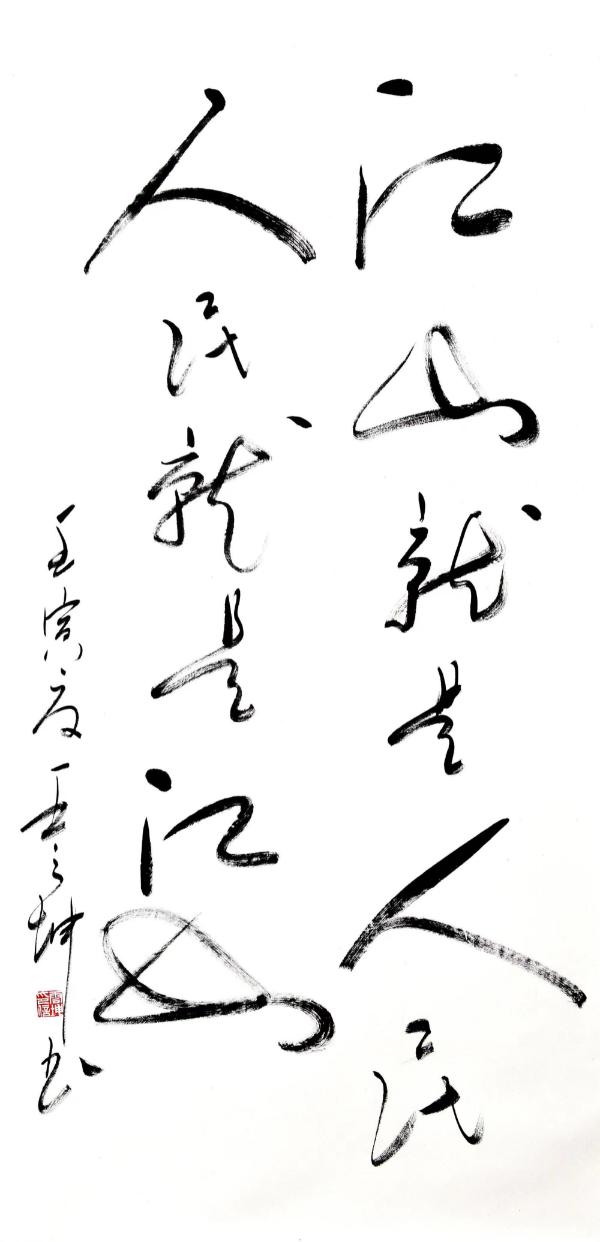 江山就是人民
人民就是江山
壬寅夏 王之坤书